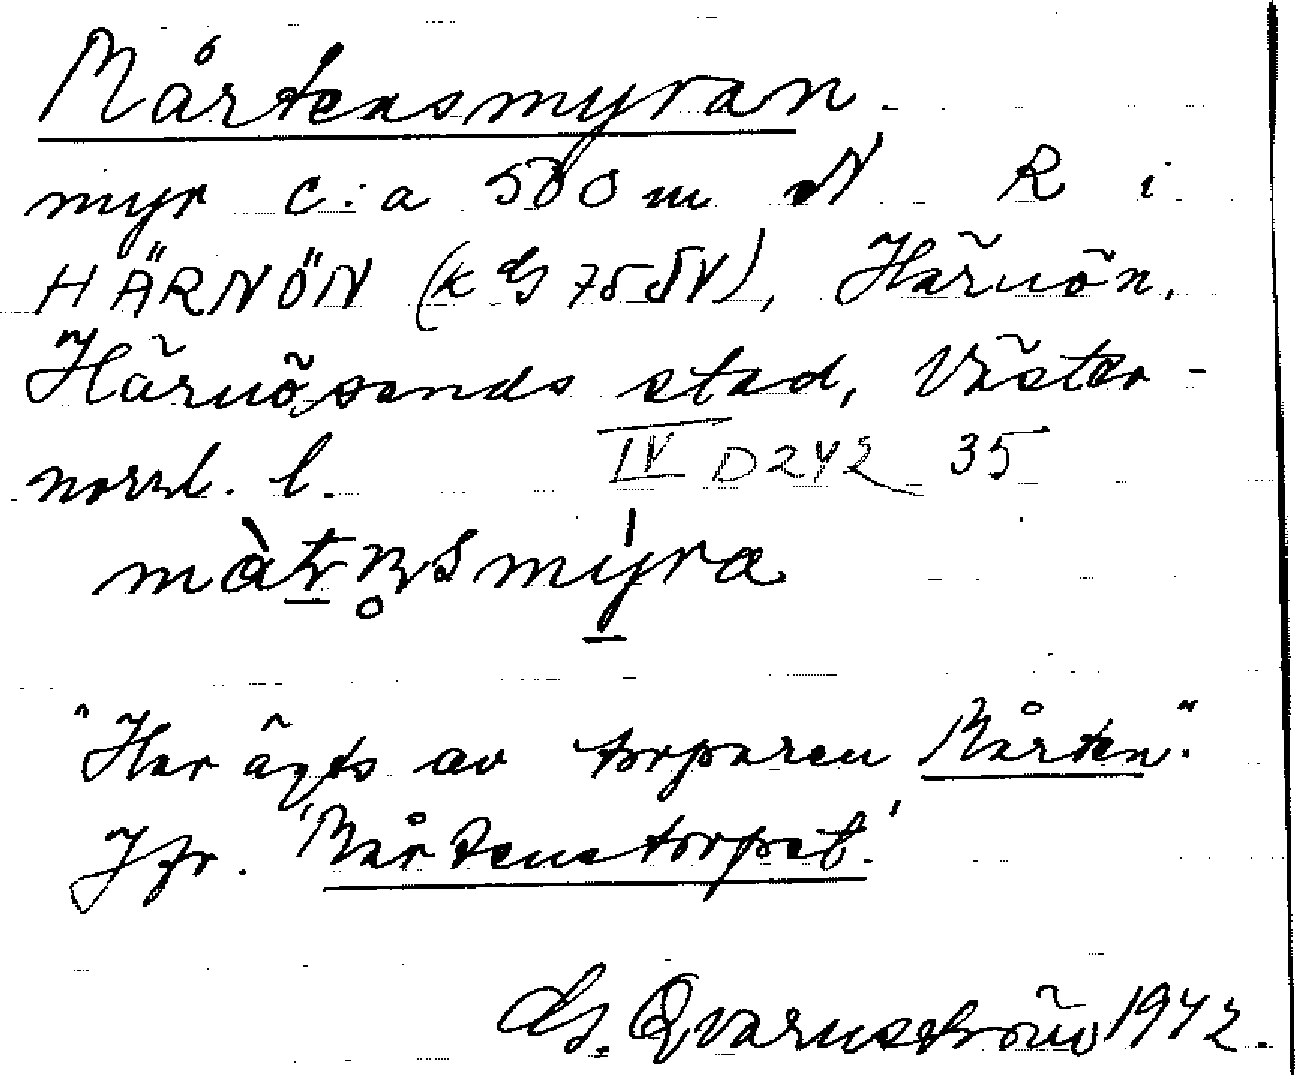 Mårtensmyran
myr c:a 500 m N R i
HÄRNÖN (k G 75 SV), Härnön,
Härnösands stad, Väster-
norrl. l. IV D242 35
"Har ägts av torparen Mårten".
Jfr. 'Mårtenstorpet.'
G. Qvarnström 1942.